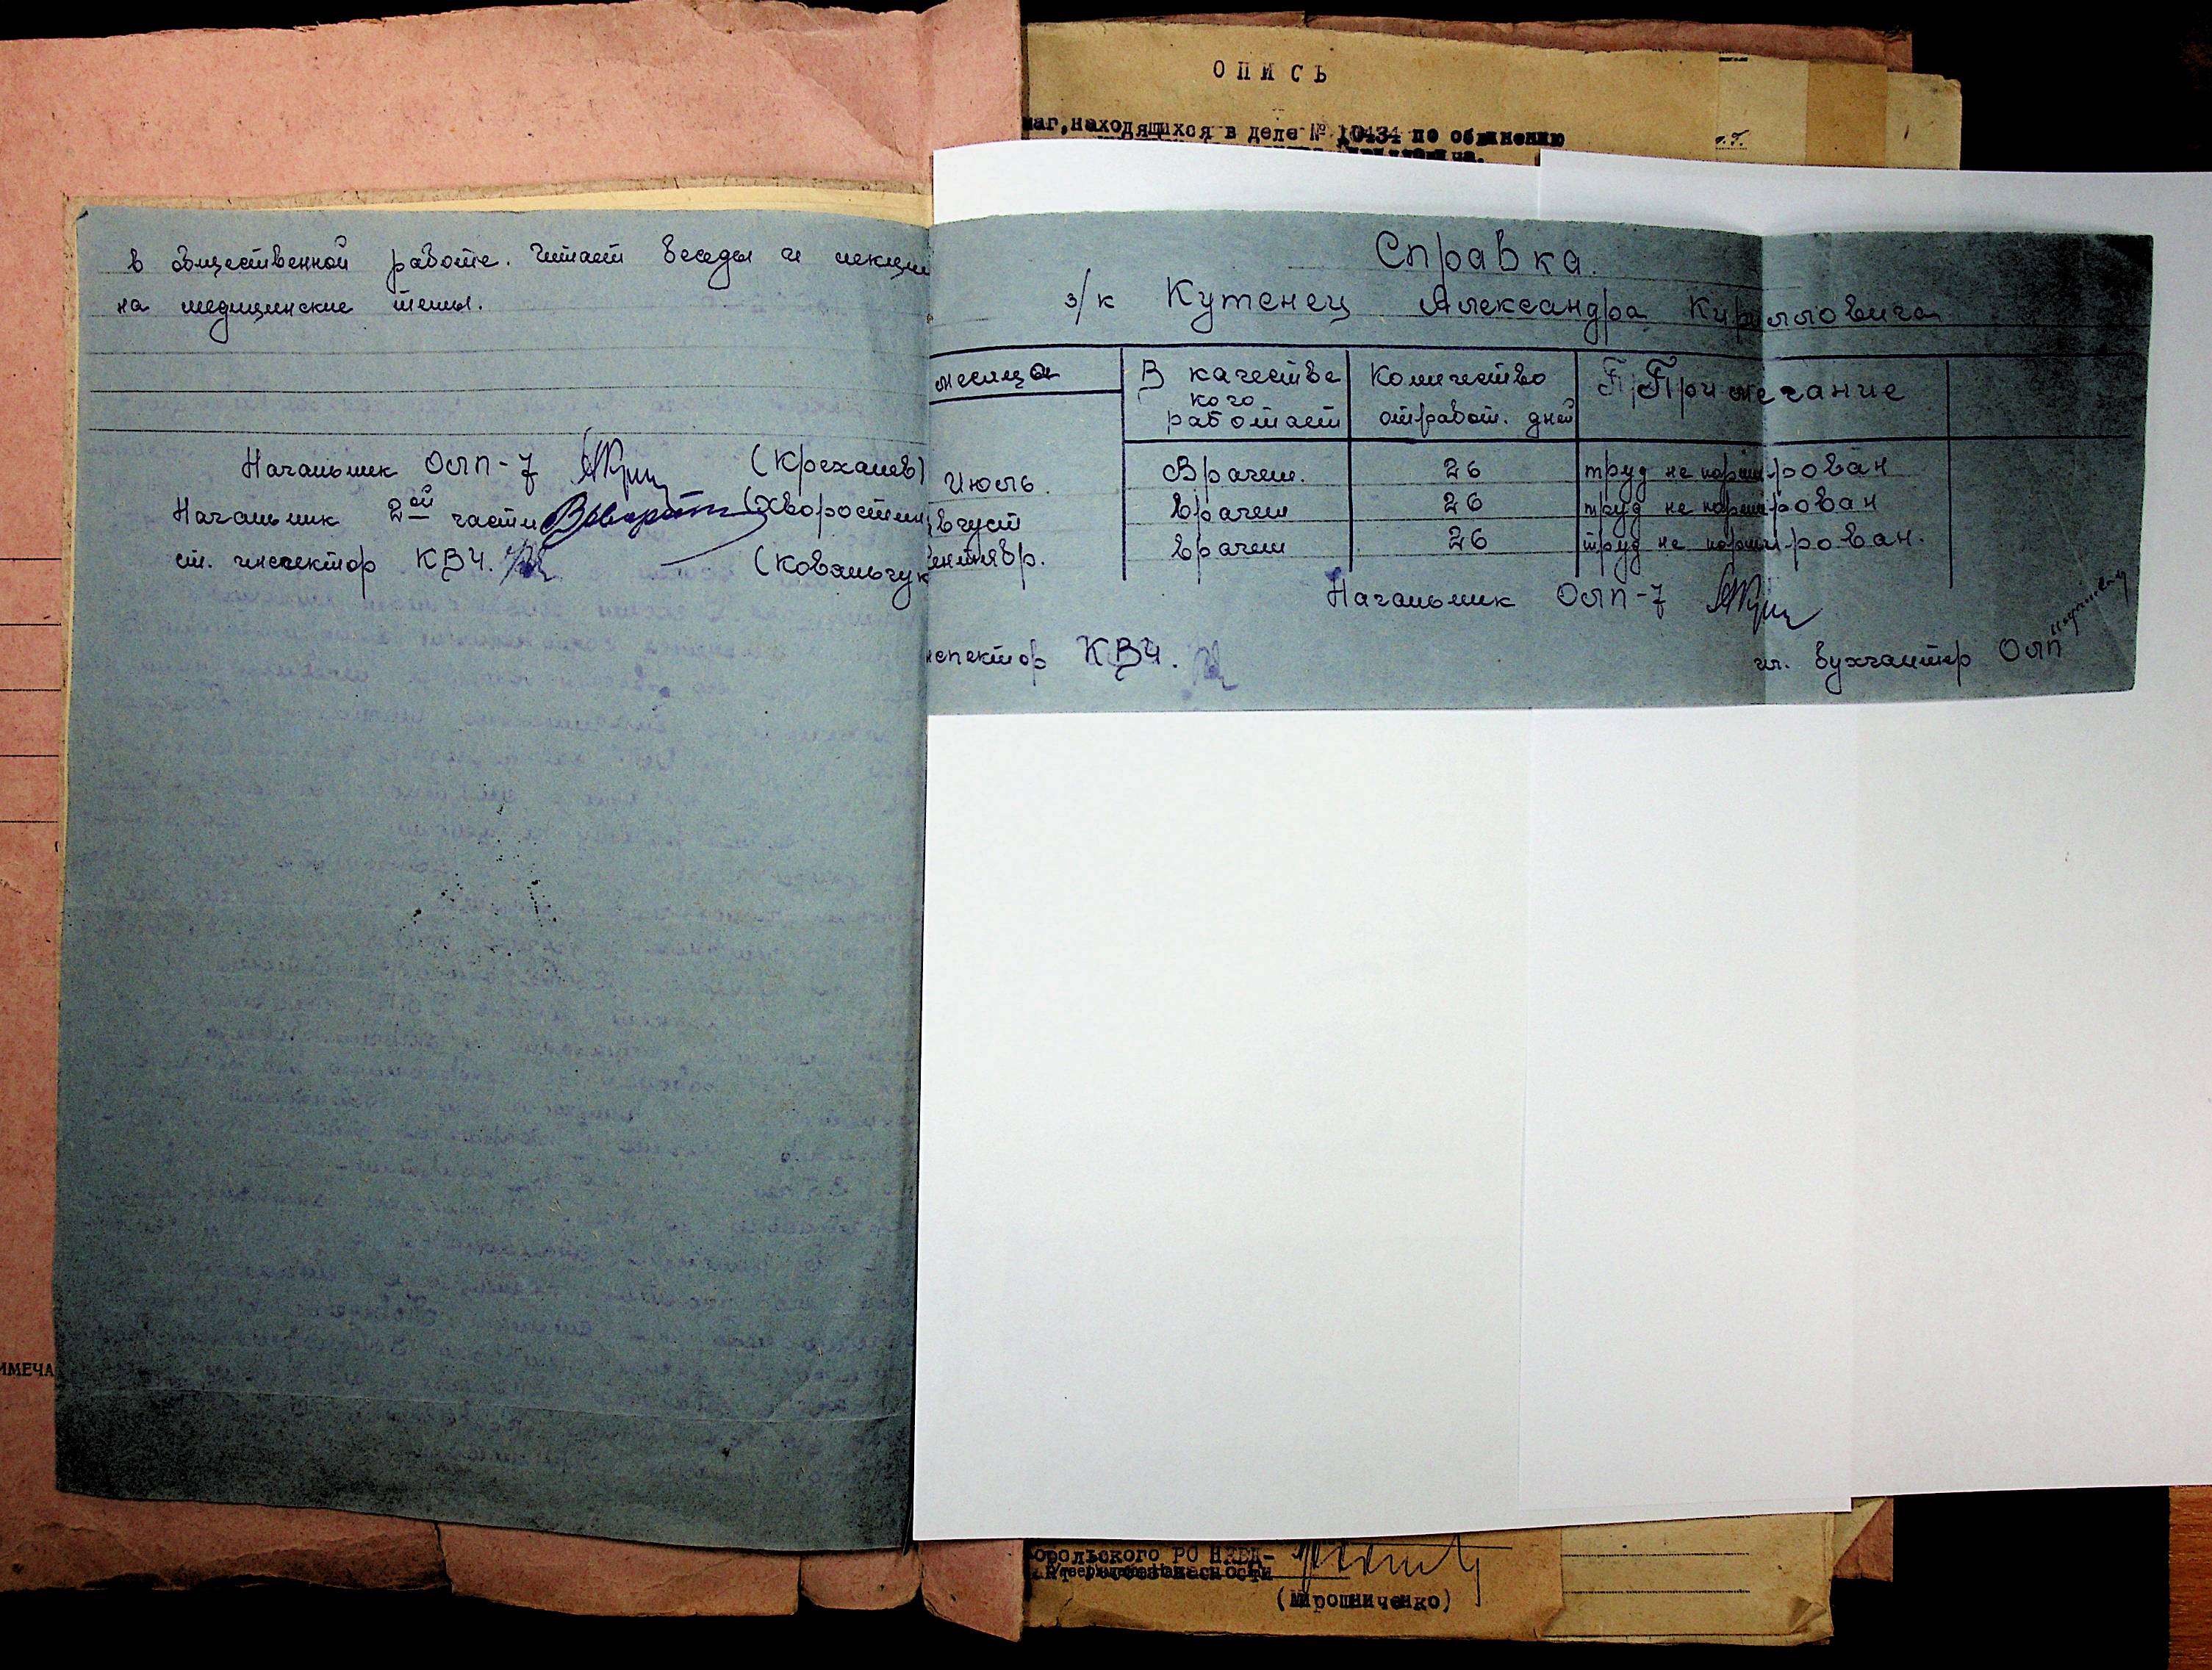 в общественной работе. Читает беседы и лекции
на медицинские темы.
Начальник ОЛП-7 (Крехалев)
Начальник 2ой части (Хворостин
ст. инспектор КВЧ. (Ковальчук
ОПИСЬ
маг, находящихся в деле № 10434 по обвинению
Справка.
з/к Кутенец Александра Кирилловича
месяца В качестве кого работает Количество отработ. дней Примечание
Июль. Врачем. 26 труд не нормирован
вгуст врачем 26 труд не нормирован
ентябр. врачем 26 труд не нормирован.
Начальник ОЛП-7
нспектор КВЧ. гл. бухгалтер ОЛП
ИМЕЧА
орольского РО НКВД-
(Мирошниченко)